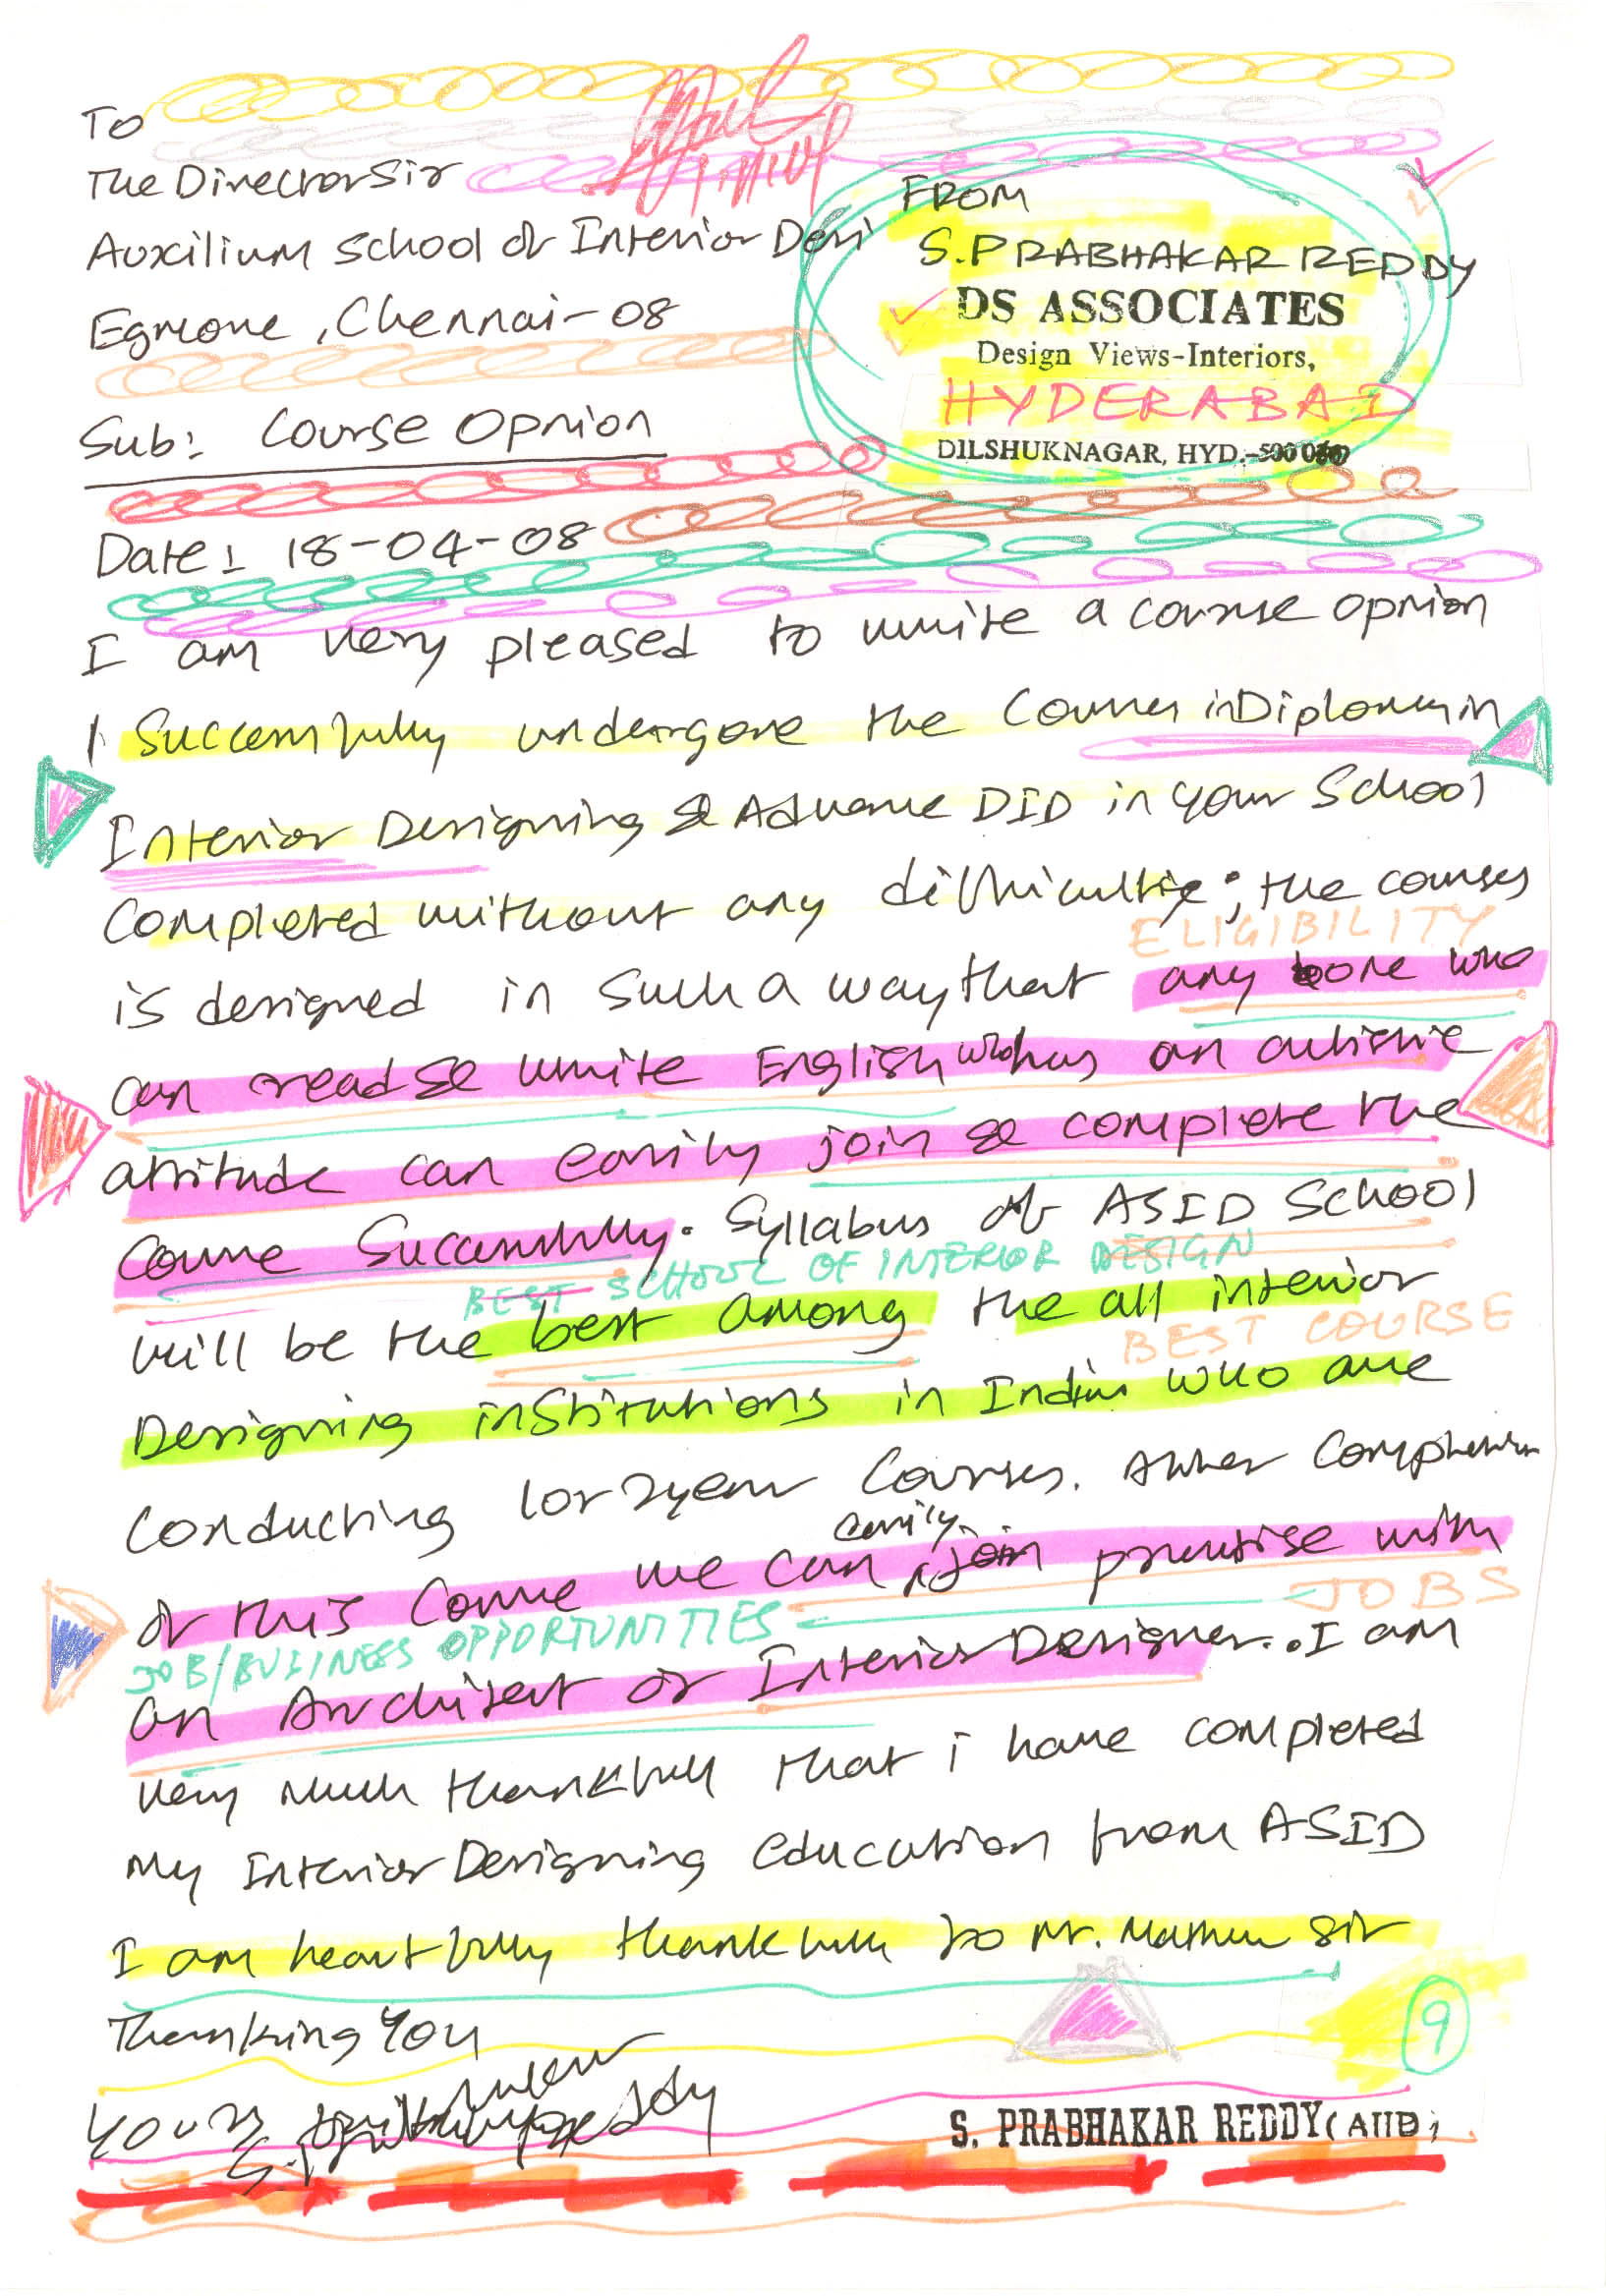 To
The Director Sir
Auxilium School of Interior Desi
Egmore, Chennai-08
FROM
S. PRABHAKAR REDDY
DS ASSOCIATES
Design Views-Interiors,
HYDERABAD
DILSHUKNAGAR, HYD.-500 0
Sub: Course Opnion
Date: 18-04-08
I am very pleased to write a course opnion
I Successfully undergone the Courses in Diploma in
Interior Designing & Advance DID in your School
completed without any difficultie; the courses
ELIGIBILITY
is designed in such a way that any one who
can read & write English who has an
attitude can easily join & complete the
Course Successfully. Syllabus of ASID School
BEST SCHOOL OF INTERIOR DESIGN
will be the best among the all interior
BEST COURSE
Designing institutions in India who are
conducting 1 or 2 year Courses. After Completion
of this Course we can easily join practise with
JOB/BUSINESS OPPORTUNITIES JOBS
an Architect or Interior Designer. I am
very much thankfull that i have completed
my Interior Designing education from ASID
I am heartfully thankfull to Mr. Mathew Sir
Thanking You
9
Yours
S. PRABHAKAR REDDY (AIID)